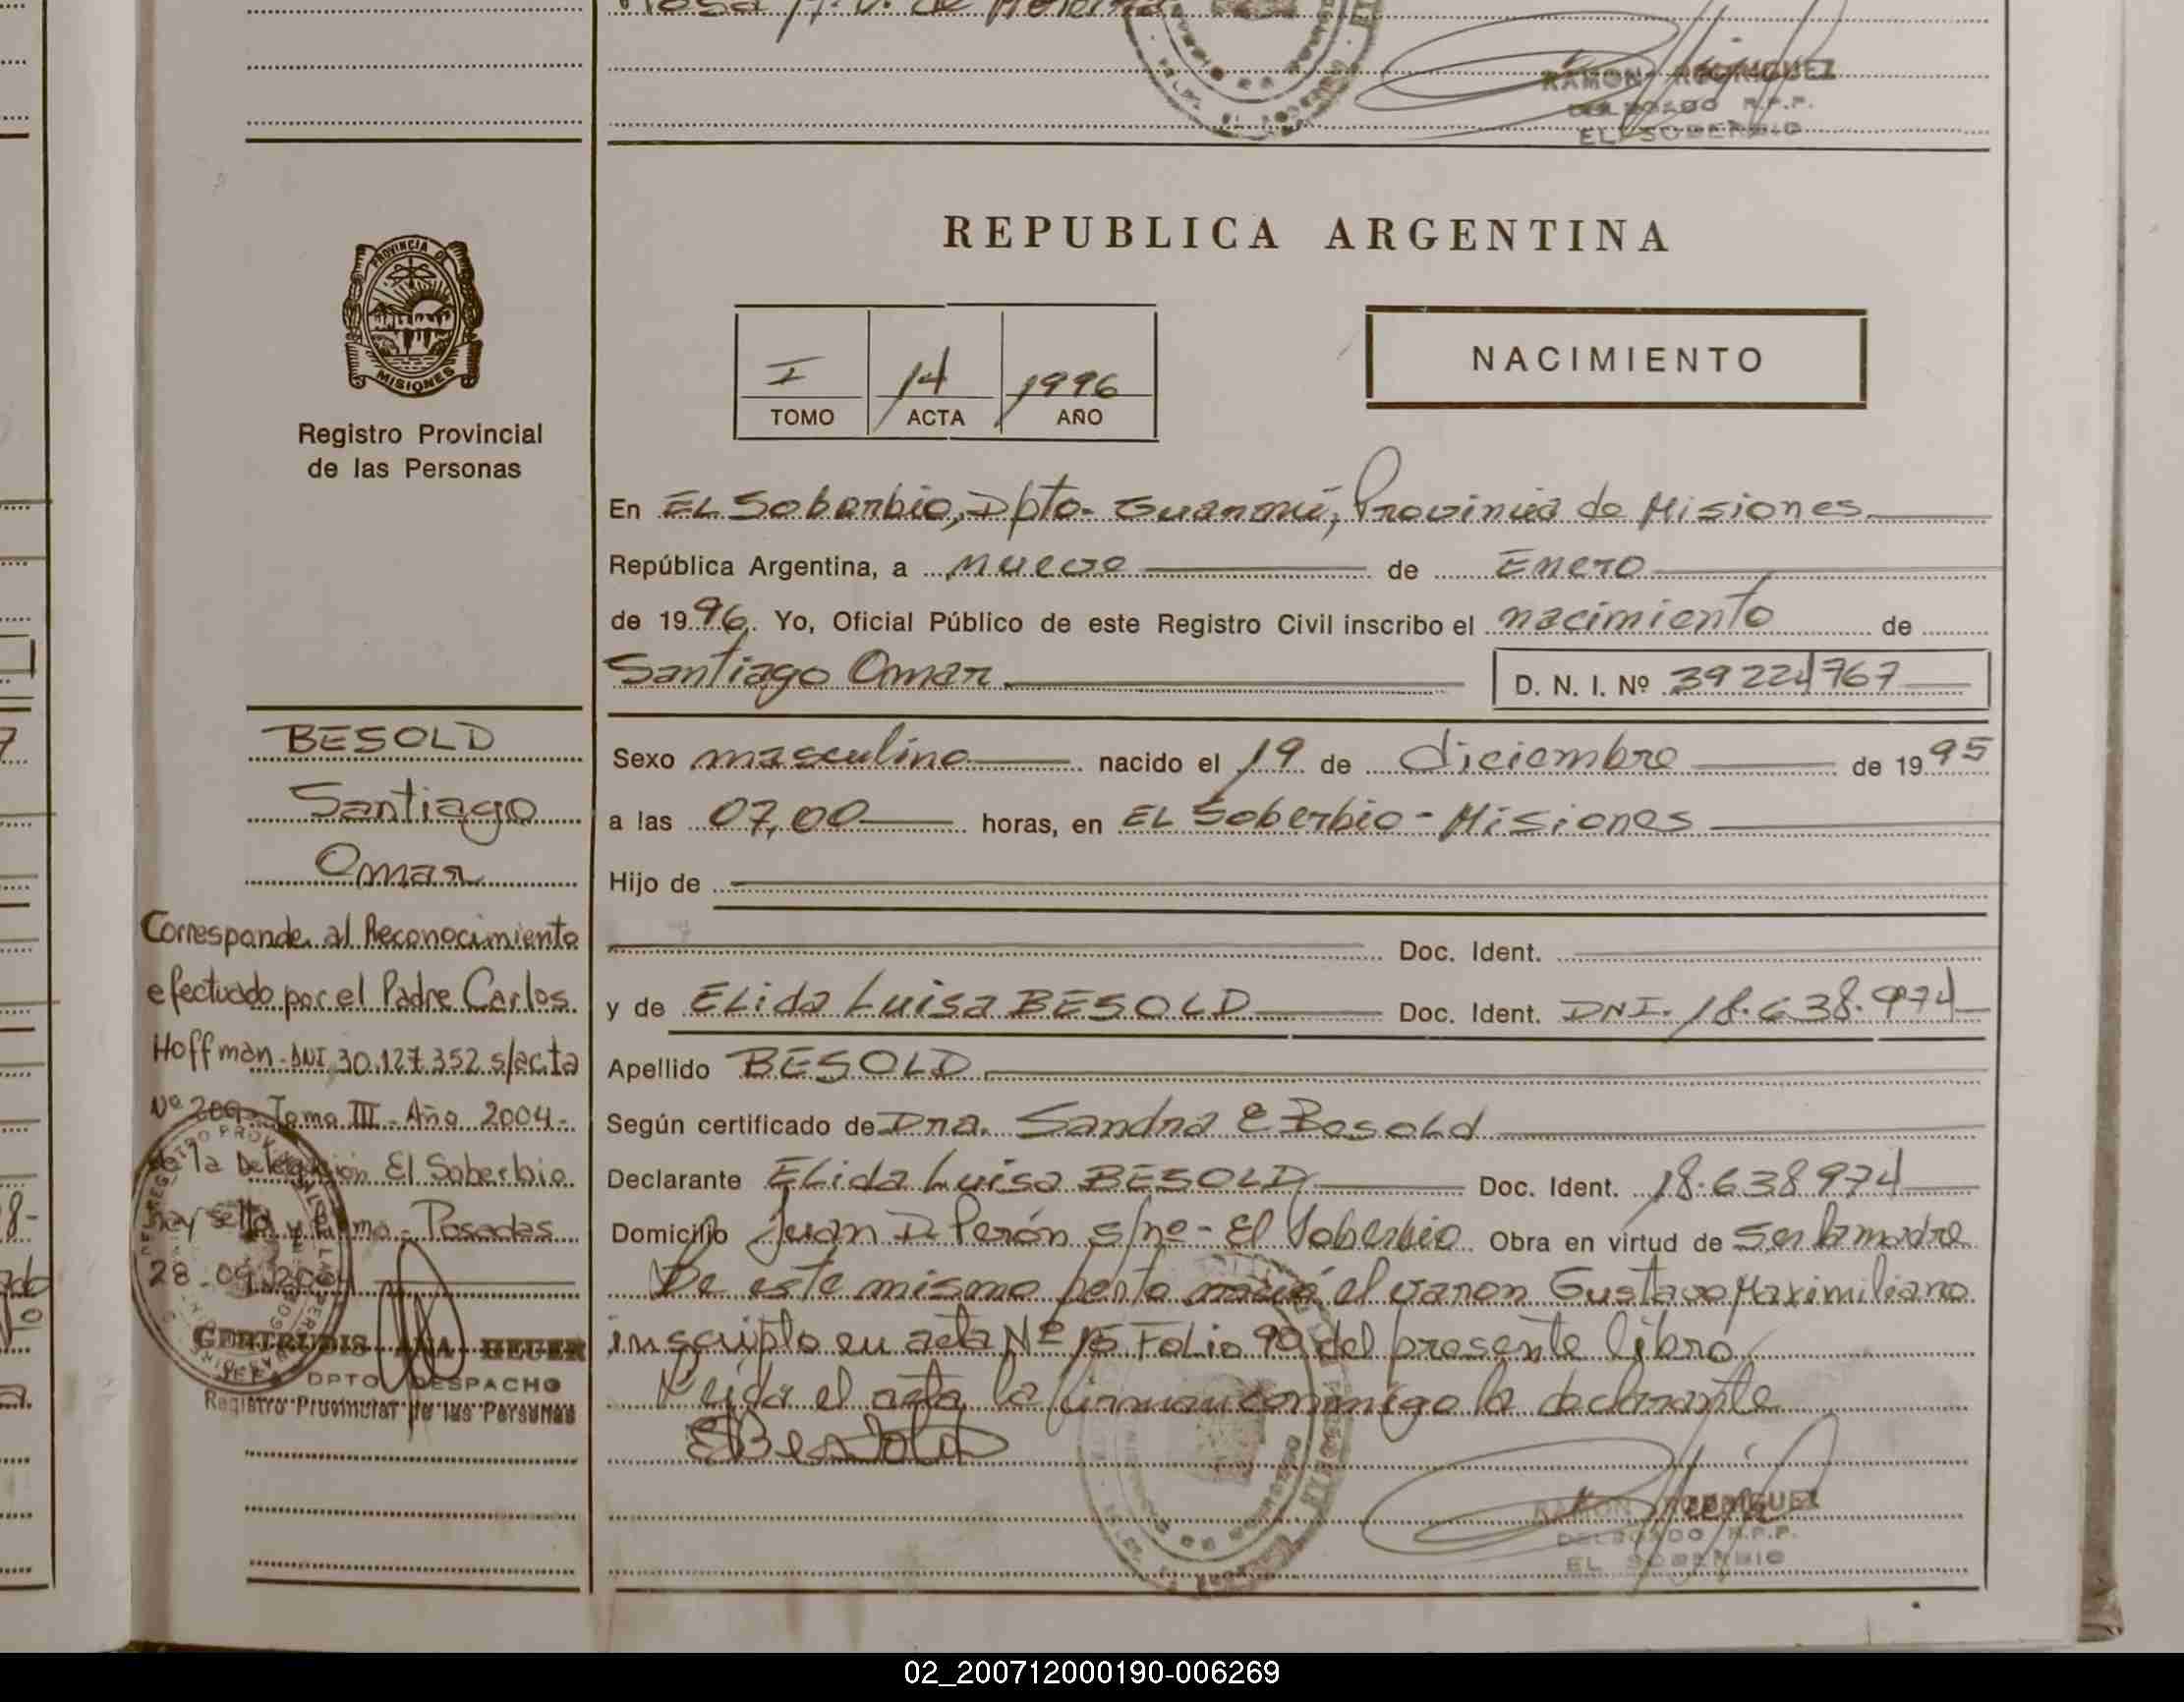 RAMON RODRIGUEZ
DELEGADO R.P.P.
EL SOBERBIO
REPUBLICA ARGENTINA
PROVINCIA DE
MISIONES
Registro Provincial
de las Personas
I 14 1996
TOMO ACTA AÑO
NACIMIENTO
En EL Soberbio, Dpto. Guaraní, Provincia de Misiones
República Argentina, a nueve de Enero
de 1996. Yo, Oficial Público de este Registro Civil inscribo el nacimiento de
Santiago Omar D. N. I. Nº 39224767
Sexo masculino nacido el 19 de diciembre de 1995
a las 07,00 horas, en EL Soberbio - Misiones
Hijo de
Doc. Ident.
y de ELida Luisa BESOLD Doc. Ident. DNI. 18.638.974
Apellido BESOLD
Según certificado de Dra. Sandra E Besold
Declarante ELida Luisa BESOLD Doc. Ident. 18.638974
Domicilio Juan D. Perón s/nº - El Soberbio Obra en virtud de Ser la madre
De este mismo parto nació el varon Gustavo Maximiliano
inscripto en acta Nº 15 Folio 90 del presente libro
Leída el acta la firman conmigo la declarante
EBesold
RAMON RODRIGUEZ
DELEGADO R.P.P.
EL SOBERBIO
BESOLD
Santiago
Omar
Corresponde al Reconocimiento
efectuado por el Padre Carlos
Hoffman - DNI 30.127.352 s/acta
Nº 209 - Tomo III - Año 2004 -
de la Delegación El Soberbio
hay sello y firma - Posadas
28 - 09
GERTRUDIS ANA HEUER
JEFA DPTO DESPACHO
Registro Provincial de las Personas
02_200712000190-006269